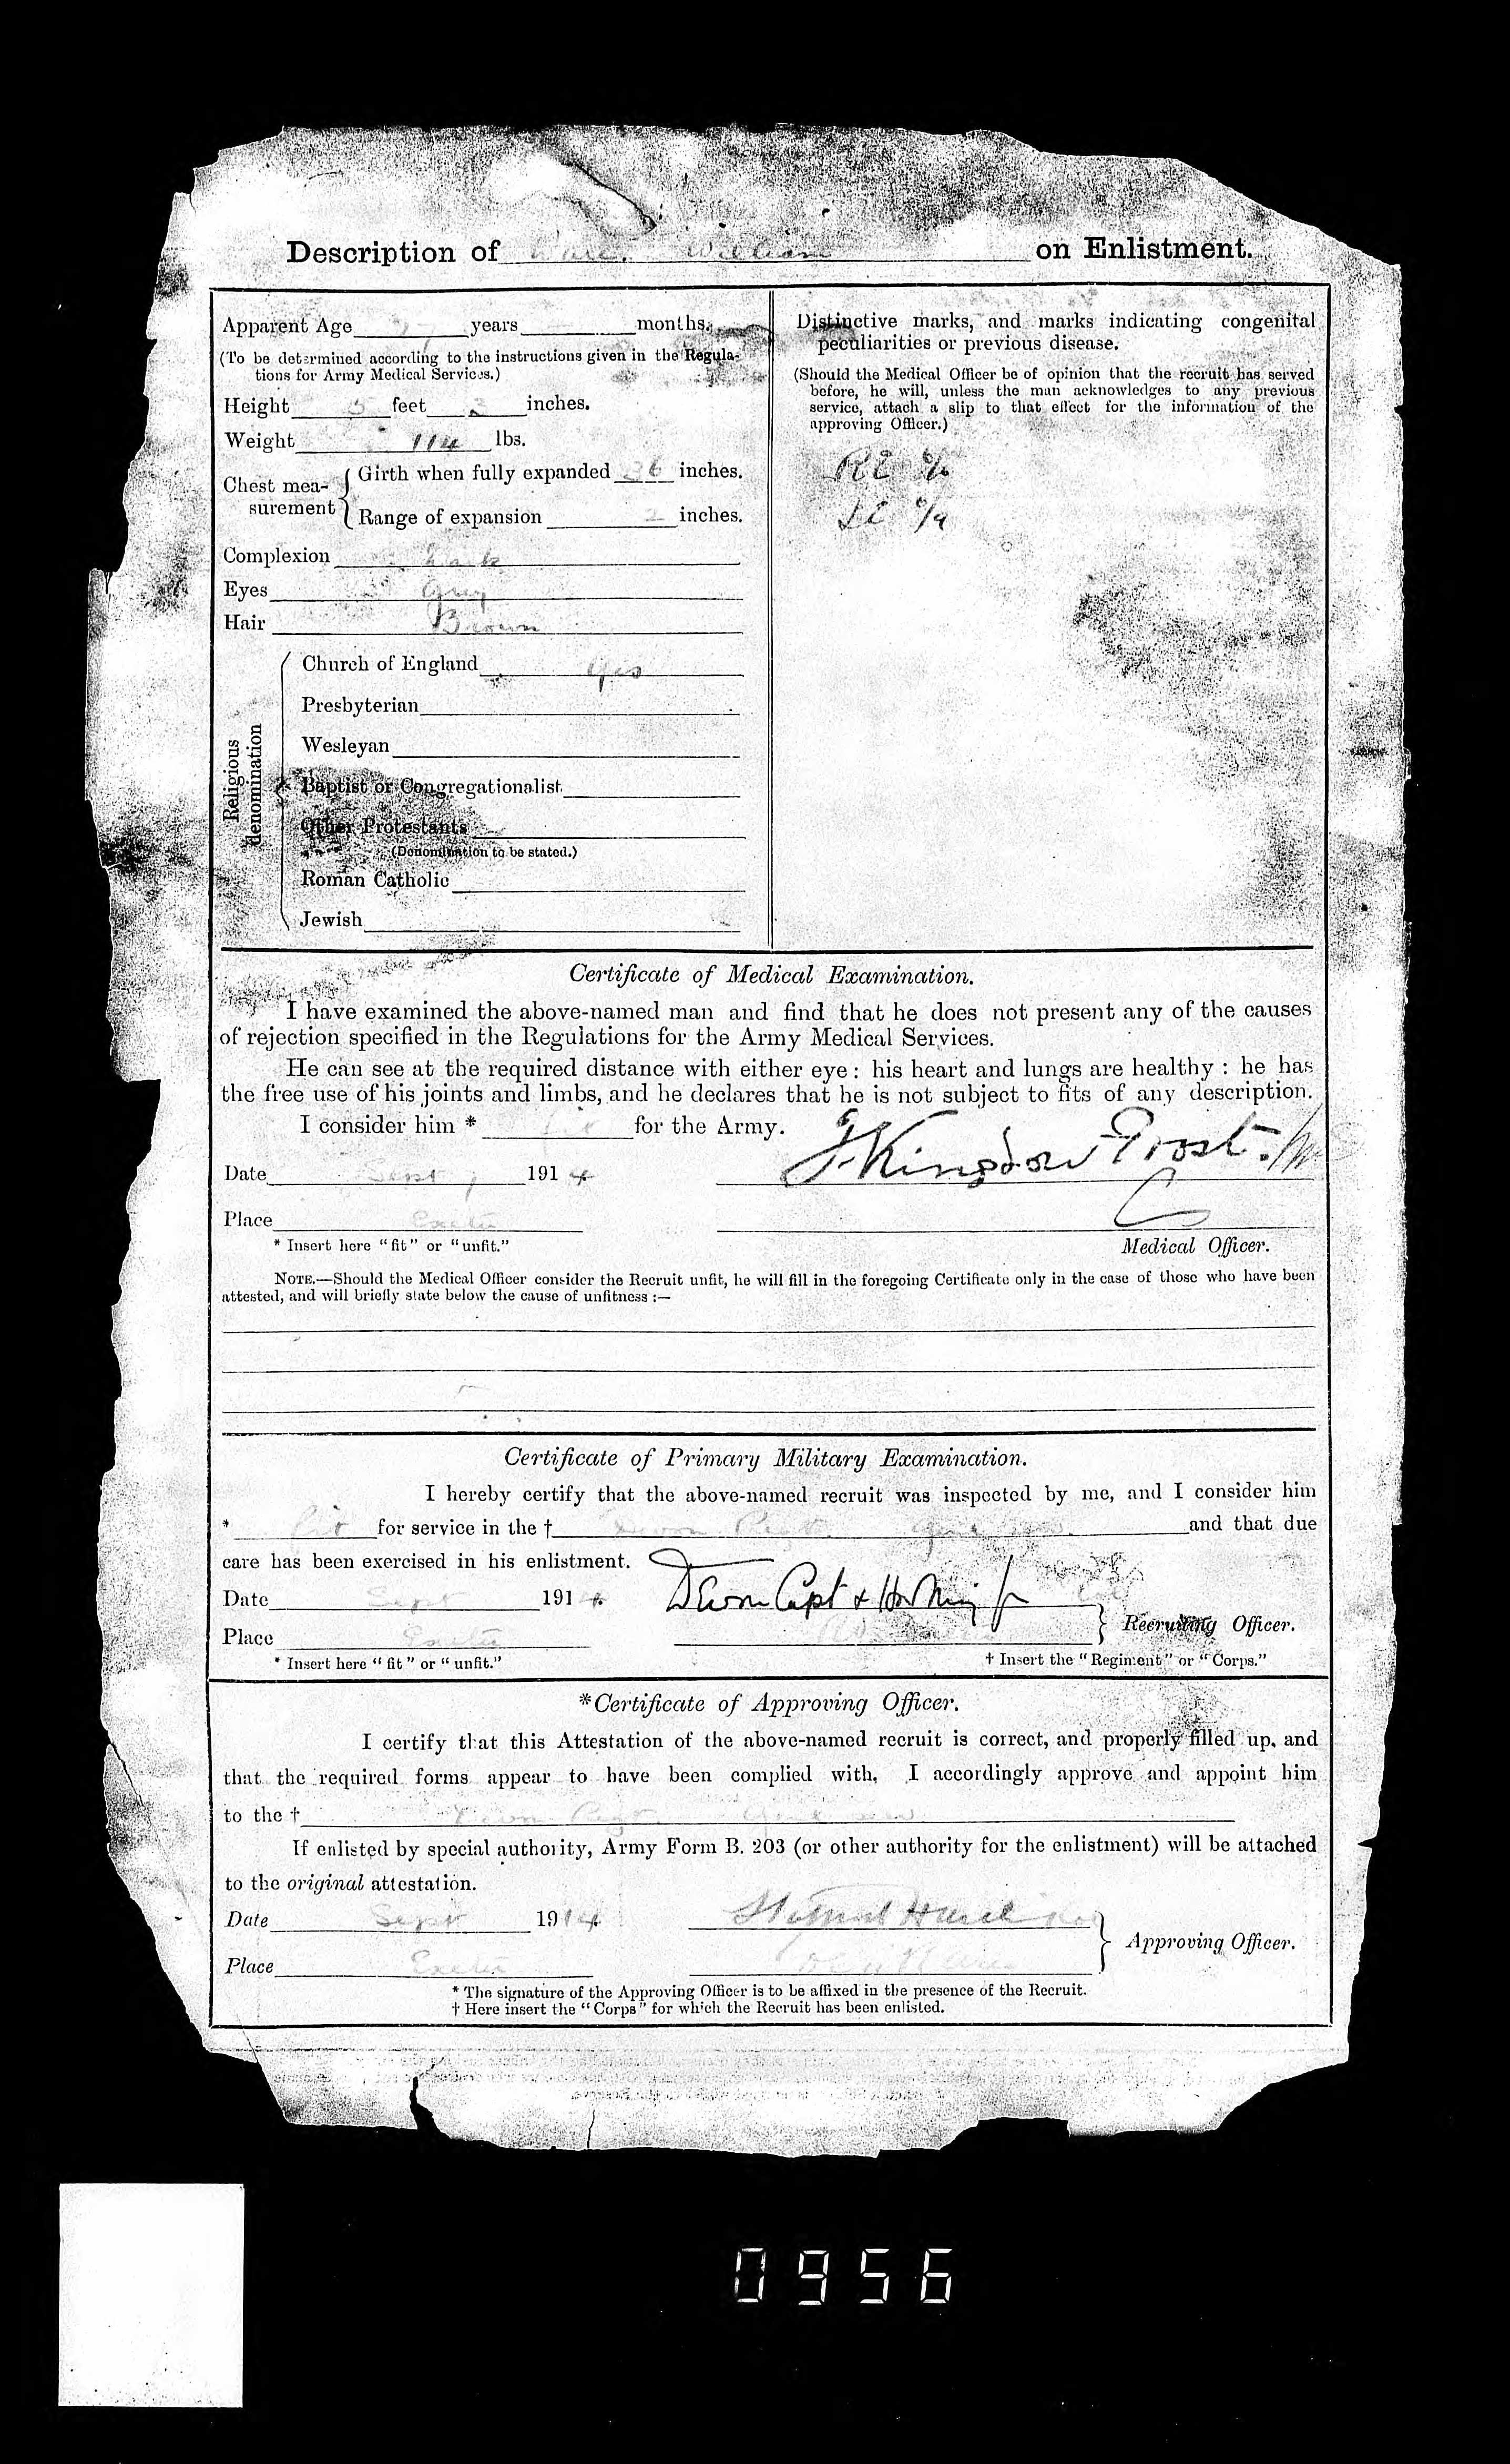 Description of William on Enlistment.
Apparent Age years months.
(To be determined according to the instructions given in the Regula-
tions for Army Medical Services.)
Height 5 feet 3 inches.
Weight 114 lbs.
Chest mea-
surement
Girth when fully expanded 36 inches.
Range of expansion 2 inches.
Complexion Dark
Eyes Grey
Hair Brown
Religious
denomination
Church of England Yes
Presbyterian
Wesleyan
Baptist or Congregationalist
Other Protestants
(Denomination to be stated.)
Roman Catholic
Jewish
Distinctive marks, and marks indicating congenital
peculiarities or previous disease.
(Should the Medical Officer be of opinion that the recruit has served
before, he will, unless the man acknowledges to any previous
service, attach a slip to that effect for the information of the
approving Officer.)
RE 6/6
LE 6/9
Certificate of Medical Examination.
I have examined the above-named man and find that he does not present any of the causes
of rejection specified in the Regulations for the Army Medical Services.
He can see at the required distance with either eye: his heart and lungs are healthy: he has
the free use of his joints and limbs, and he declares that he is not subject to fits of any description.
I consider him * fit for the Army.
F. Kingdon Frost.
Date Sept 1914
Place Exeter
* Insert here "fit" or "unfit."
Medical Officer.
NOTE.—Should the Medical Officer consider the Recruit unfit, he will fill in the foregoing Certificate only in the case of those who have been
attested, and will briefly state below the cause of unfitness :—
Certificate of Primary Military Examination.
I hereby certify that the above-named recruit was inspected by me, and I consider him
* fit for service in the † Devon Regt. and that due
care has been exercised in his enlistment.
Capt & Hon Maj
Date Sept 1914
Place Exeter
Recruiting Officer.
* Insert here "fit" or "unfit."
† Insert the "Regiment" or "Corps."
*Certificate of Approving Officer.
I certify that this Attestation of the above-named recruit is correct, and properly filled up, and
that the required forms appear to have been complied with. I accordingly approve and appoint him
to the † Devon Regt
If enlisted by special authority, Army Form B. 203 (or other authority for the enlistment) will be attached
to the original attestation.
Date Sept 1914
Place Exeter
Approving Officer.
* The signature of the Approving Officer is to be affixed in the presence of the Recruit.
† Here insert the "Corps" for which the Recruit has been enlisted.
0956